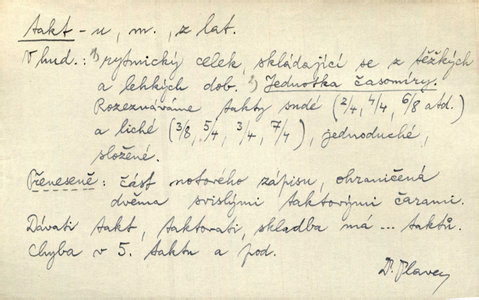 takt -u, m., z lat.
V hud.: 1) rytmický celek, skládající se z těžkých
a lehkých dob. 2) Jednotka časomíry.
Rozeznáváme takty sudé (2/4, 4/4, 6/8 atd.)
a liché (3/8, 5/4, 3/4, 7/4), jednoduché,
složené.
Přeneseně: část notového zápisu, ohraničená
dvěma svislými taktovými čarami.
Dávati takt, taktovati, skladba má ... taktů.
Chyba v 5. taktu a pod.